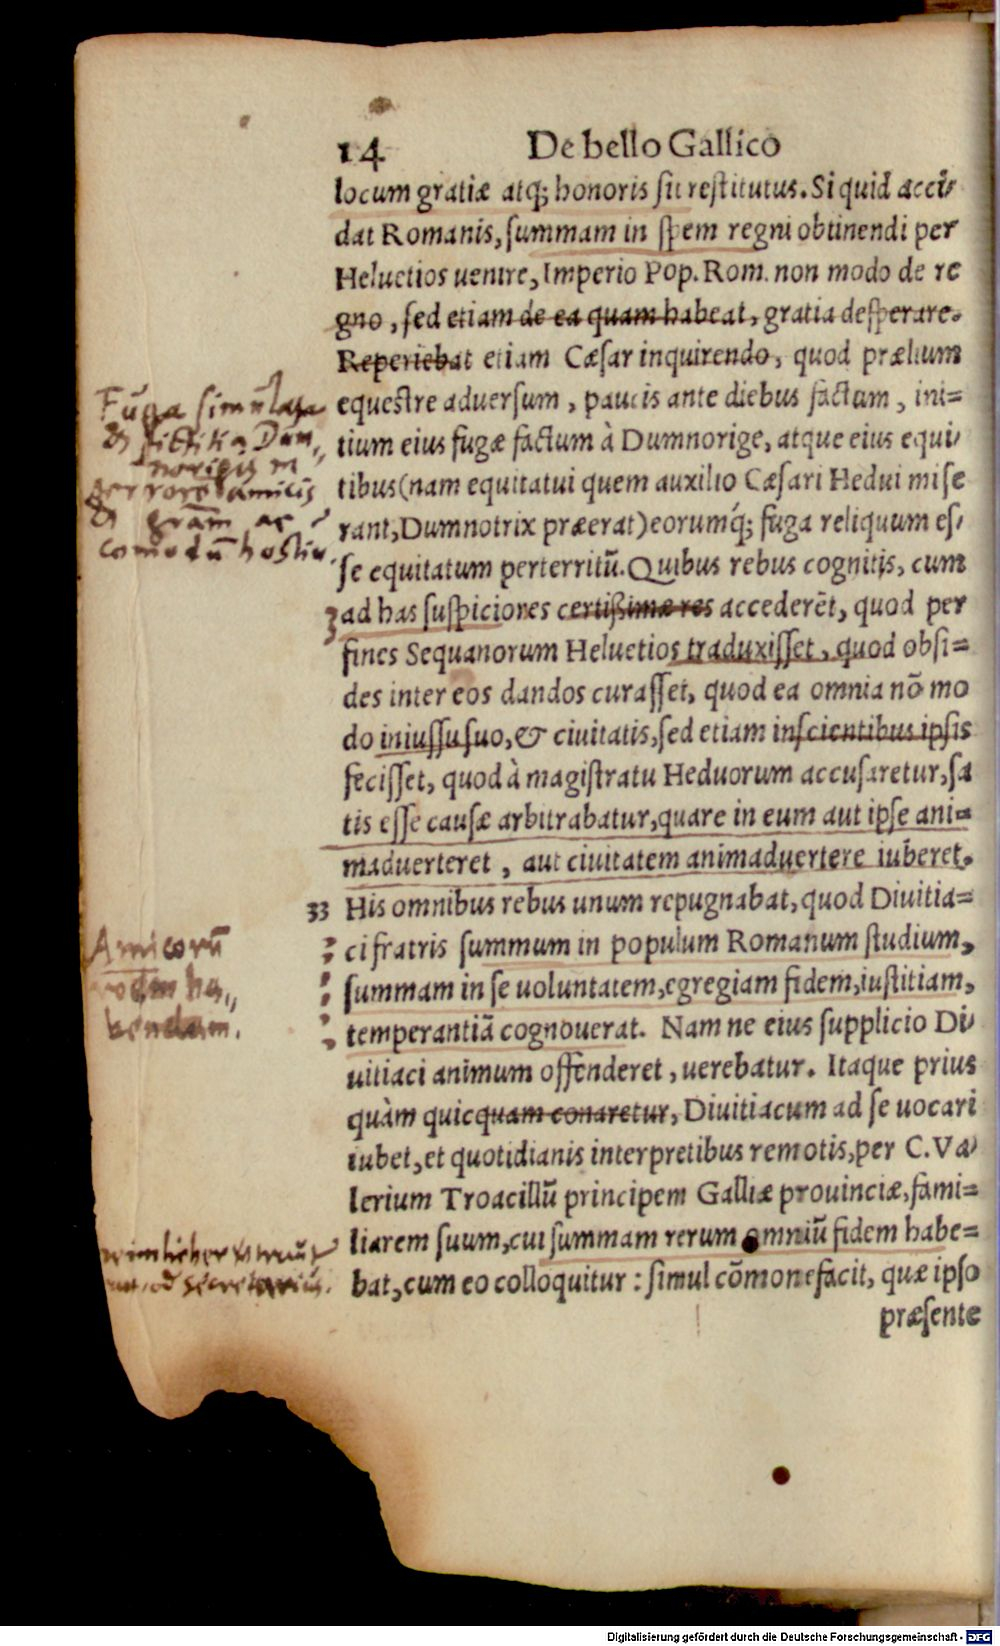 14 De bello Gallico
locum gratiæ atq; honoris sit restitutus. Si quid acci-
dat Romanis, summam in spem regni obtinendi per
Heluetios uenire, Imperio Pop. Rom. non modo de re
gno, sed etiam de ea quam habeat, gratia desperare.
Reperiebat etiam Cæsar inquirendo, quod prælium
equestre aduersum, paucis ante diebus factum, ini=
tium eius fugæ factum à Dumnorige, atque eius equi-
tibus (nam equitatui quem auxilio Cæsari Hedui mise
rant, Dumnotrix præerat) eorumq́; fuga reliquum es-
se equitatum perterritū. Quibus rebus cognitis, cum
ad has suspiciones certißimæ res accederēt, quod per
fines Sequanorum Heluetios traduxisset, quod obsi=
des inter eos dandos curasset, quod ea omnia nō mo
do iniussu suo, & ciuitatis, sed etiam inscientibus ipsis
fecisset, quod à magistratu Heduorum accusaretur, sa
tis esse causæ arbitrabatur, quare in eum aut ipse ani=
maduerteret, aut ciuitatem animaduertere iuberet.
33 His omnibus rebus unum repugnabat, quod Diuitia=
ci fratris summum in populum Romanum studium,
summam in se uoluntatem, egregiam fidem, iustitiam,
temperantiā cognouerat. Nam ne eius supplicio Di-
uitiaci animum offenderet, uerebatur. Itaque prius
quàm quicquam conaretur, Diuitiacum ad se uocari
iubet, et quotidianis interpretibus remotis, per C. Va-
lerium Troacillū principem Galliæ prouinciæ, fami=
liarem suum, cui summam rerum omniū fidem habe=
bat, cum eo colloquitur: simul cōmonefacit, quæ ipso
præsente
Fuga simulata
& fictitia Dum,,
norigis
terrore amicis
&
comodū hostiū.
Amicorū
ha,,
bendam.
secretarius.
Digitalisierung gefördert durch die Deutsche Forschungsgemeinschaft - DFG